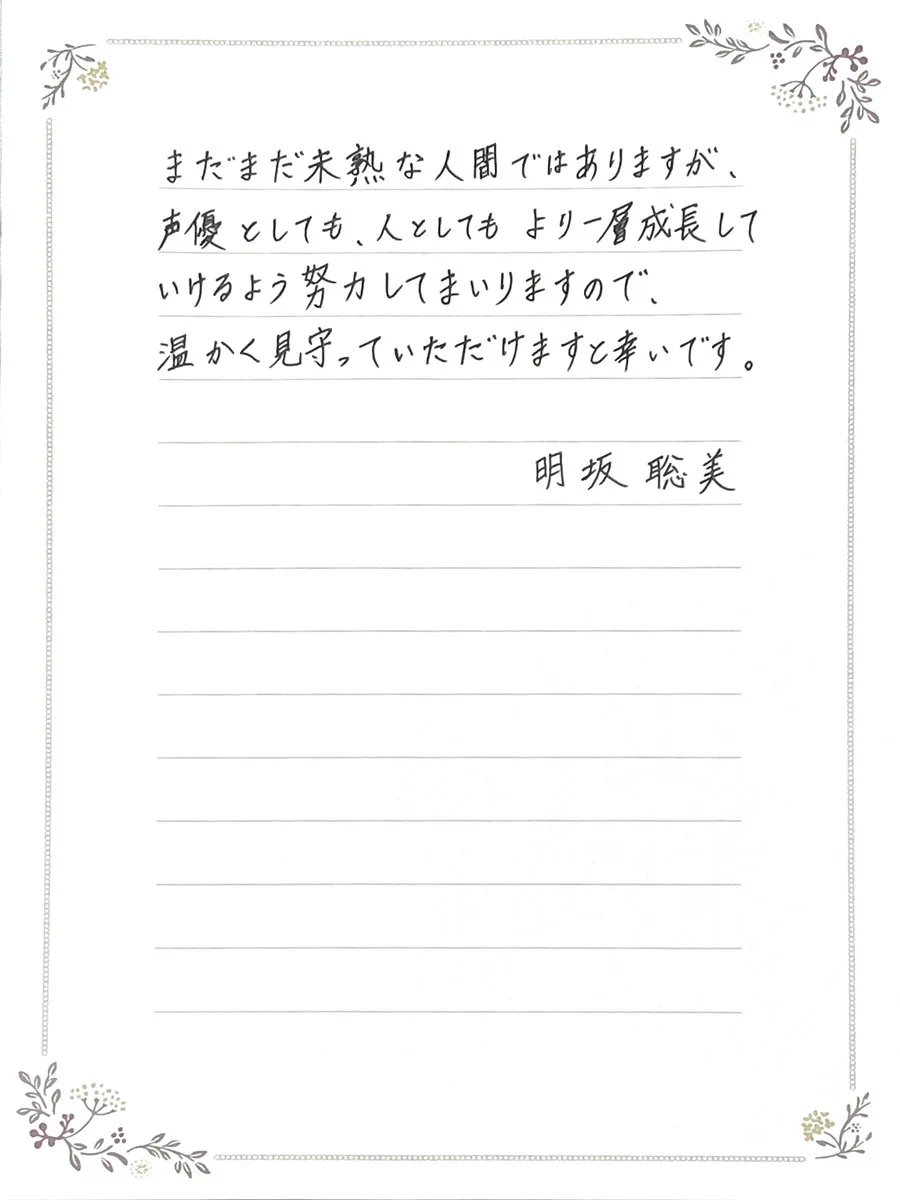 まだまだ未熟な人間ではありますが、
声優としても、人としても より一層成長して
いけるよう努力してまいりますので、
温かく見守っていただけますと幸いです。
明坂 聡美